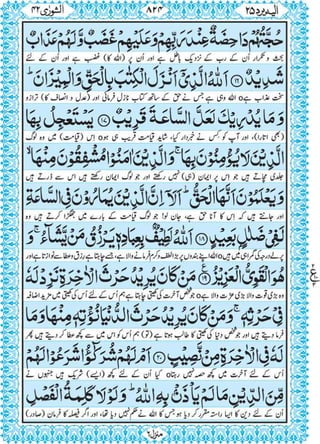 الشورٰی ۴۲
۸۲۴
الیہ یرد ۲۵
حُجَّتُهُمْ دَاحِضَةٌ عِنْدَ رَبِّهِمْ وَعَلَيْهِمْ غَضَبٌ وَّلَهُمْ عَذَابٌ
بحث و تکرار اُن کے رب کے نزدیک باطل ہے اور اُن پر (اللہ کا) غضب ہے اور اُن کے لئے
شَدِيْدٌ ۝۱۶ اَللّٰهُ الَّذِيْۤ اَنْزَلَ الْكِتٰبَ بِالْحَقِّ وَالْمِيْزَانَ ؕ
سخت عذاب ہے۝ اللہ وہی ہے جس نے حق کے ساتھ کتاب نازل فرمائی اور (عدل و انصاف کا) ترازو
وَمَا يُدْرِيْكَ لَعَلَّ السَّاعَةَ قَرِيْبٌ ۝۱۷ يَسْتَعْجِلُ بِهَا
(بھی اتارا)، اور آپ کو کس نے خبردار کیا، شاید قیامت قریب ہی ہو۝ اِس (قیامت) میں وہ لوگ
الَّذِيْنَ لَا يُؤْمِنُوْنَ بِهَا ۚ وَالَّذِيْنَ اٰمَنُوْا مُشْفِقُوْنَ مِنْهَا ۙ
جلدی مچاتے ہیں جو اِس پر ایمان (ہی) نہیں رکھتے اور جو لوگ ایمان رکھتے ہیں اس سے ڈرتے ہیں
وَيَعْلَمُوْنَ اَنَّهَا الْحَقُّ ؕ اَلَاۤ اِنَّ الَّذِيْنَ يُمَارُوْنَ فِي السَّاعَةِ
اور جانتے ہیں کہ اس کا آنا حق ہے، جان لو! جو لوگ قیامت کے بارے میں جھگڑا کرتے ہیں وہ
لَفِيْ ضَلٰلٍۭ بَعِيْدٍ ۝۱۸ اَللّٰهُ لَطِيْفٌۢ بِعِبَادِهٖ يَرْزُقُ مَنْ يَّشَآءُ ۚ وَ
پرلے درجہ کی گمراہی میں ہیں۝ اللہ اپنے بندوں پر بڑا لطف و کرم فرمانے والا ہے، جسے چاہتا ہے رزق و عطا سے نوازتا ہے اور
هُوَ الْقَوِيُّ الْعَزِيْزُ ۝۱۹ مَنْ كَانَ يُرِيْدُ حَرْثَ الْاٰخِرَةِ نَزِدْ لَهٗ
وہ بڑی قوت والا بڑی عزت والا ہے۝ جو شخص آخرت کی کھیتی چاہتا ہے ہم اُس کے لئے اُس کی کھیتی میں مزید اضافہ
فِيْ حَرْثِهٖ ۚ وَمَنْ كَانَ يُرِيْدُ حَرْثَ الدُّنْيَا نُؤْتِهٖ مِنْهَا وَمَا
فرما دیتے ہیں اور جو شخص دنیا کی کھیتی کا طالب ہوتا ہے (تو) ہم اس کو اس میں سے کچھ عطا کر دیتے ہیں، پھر
لَهٗ فِي الْاٰخِرَةِ مِنْ نَّصِيْبٍ ۝۲۰ اَمْ لَهُمْ شُرَكٰٓؤُا شَرَعُوْا لَهُمْ
اُس کے لئے آخرت میں کچھ حصہ نہیں رہتا۝ کیا اُن کے لئے کچھ (ایسے) شریک ہیں جنہوں نے
مِّنَ الدِّيْنِ مَا لَمْ يَاْذَنْۢ بِهِ اللّٰهُ ؕ وَلَوْلَا كَلِمَةُ الْفَصْلِ
اُن کے لئے دین کا ایسا راستہ مقرر کر دیا ہو جس کا اللہ نے حکم نہیں دیا تھا، اور اگر فیصلہ کا فرمان (صادر)
منزل ۶